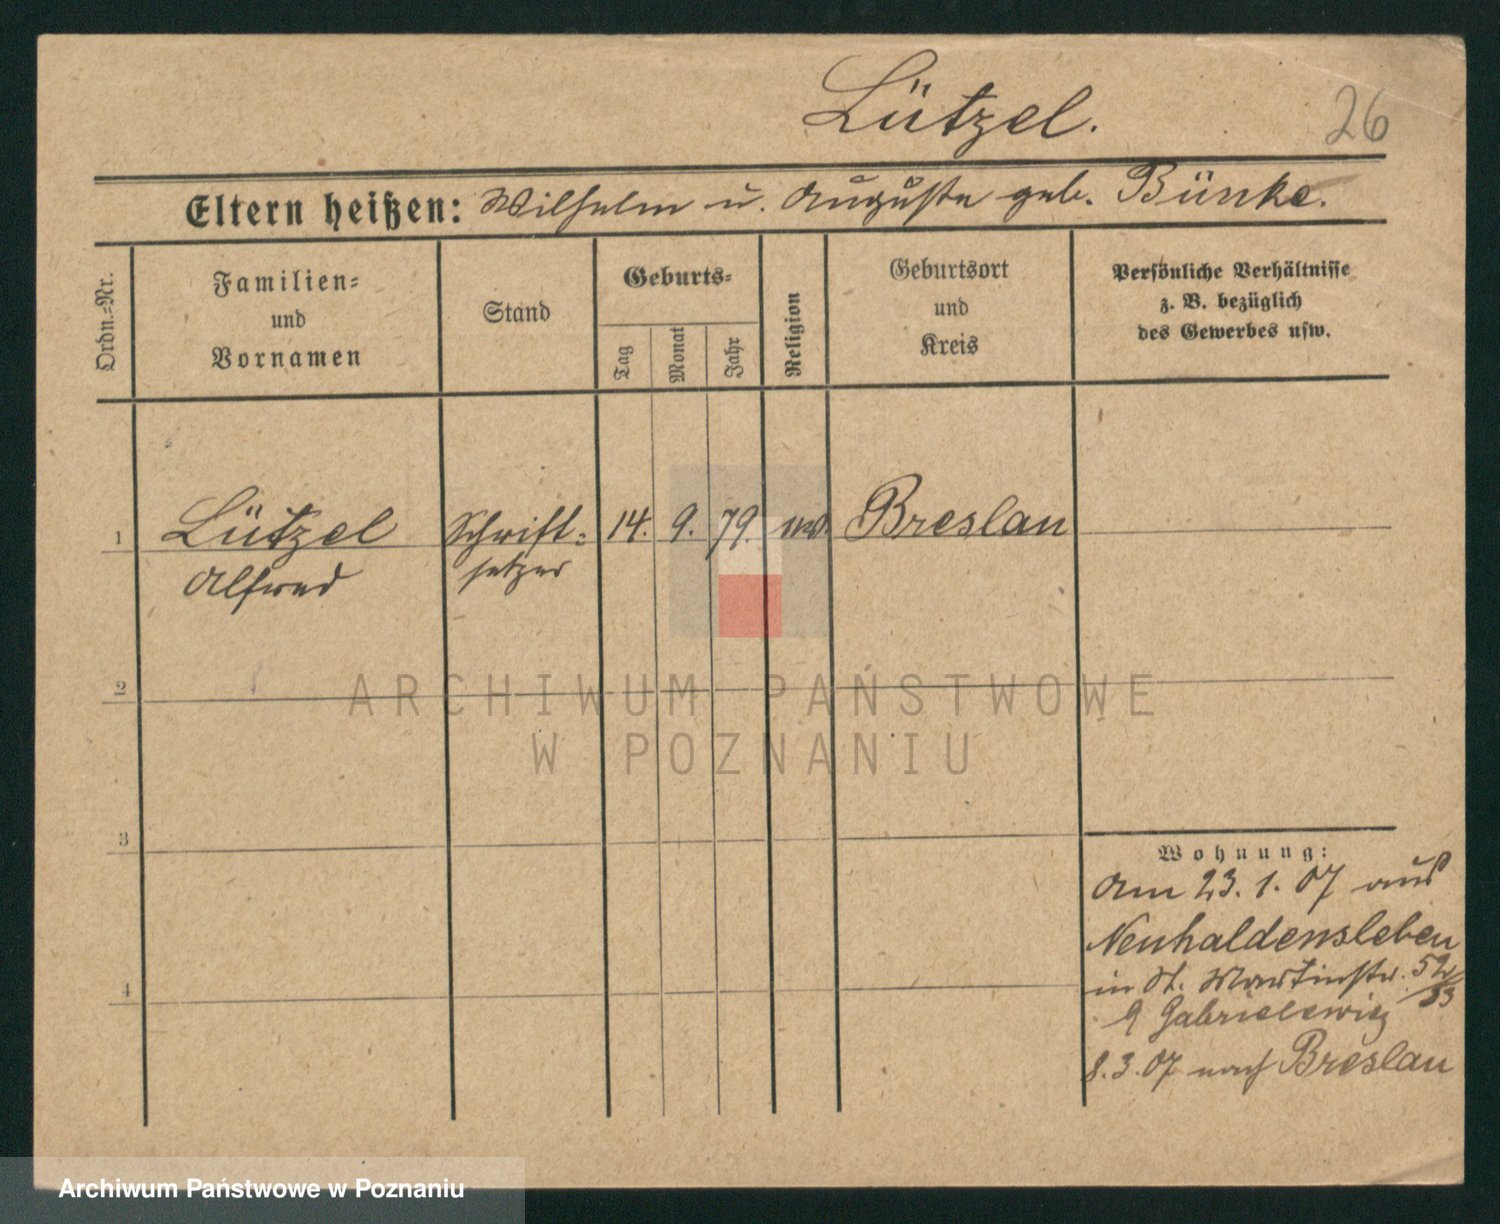 Lützel.
26
Eltern heißen: Wilhelm u. Auguste geb. Bünke.
Ordn.-Nr.
Familien-
und
Vornamen
Stand
Geburts-
Tag
Monat
Jahr
Religion
Geburtsort
und
Kreis
Persönliche Verhältnisse
z. B. bezüglich
des Gewerbes usw.
1
Lützel
Alfred
Schrift-
setzer
14.
9.
79.
Breslau
2
ARCHIWUM PAŃSTWOWE
W POZNANIU
3
Wohnung:
Am 23. 1. 07 aus
Neuhaldensleben
in St. Martinstr. 52/53
Gabrielewicz
8. 3. 07 nach Breslau
4
Archiwum Państwowe w Poznaniu